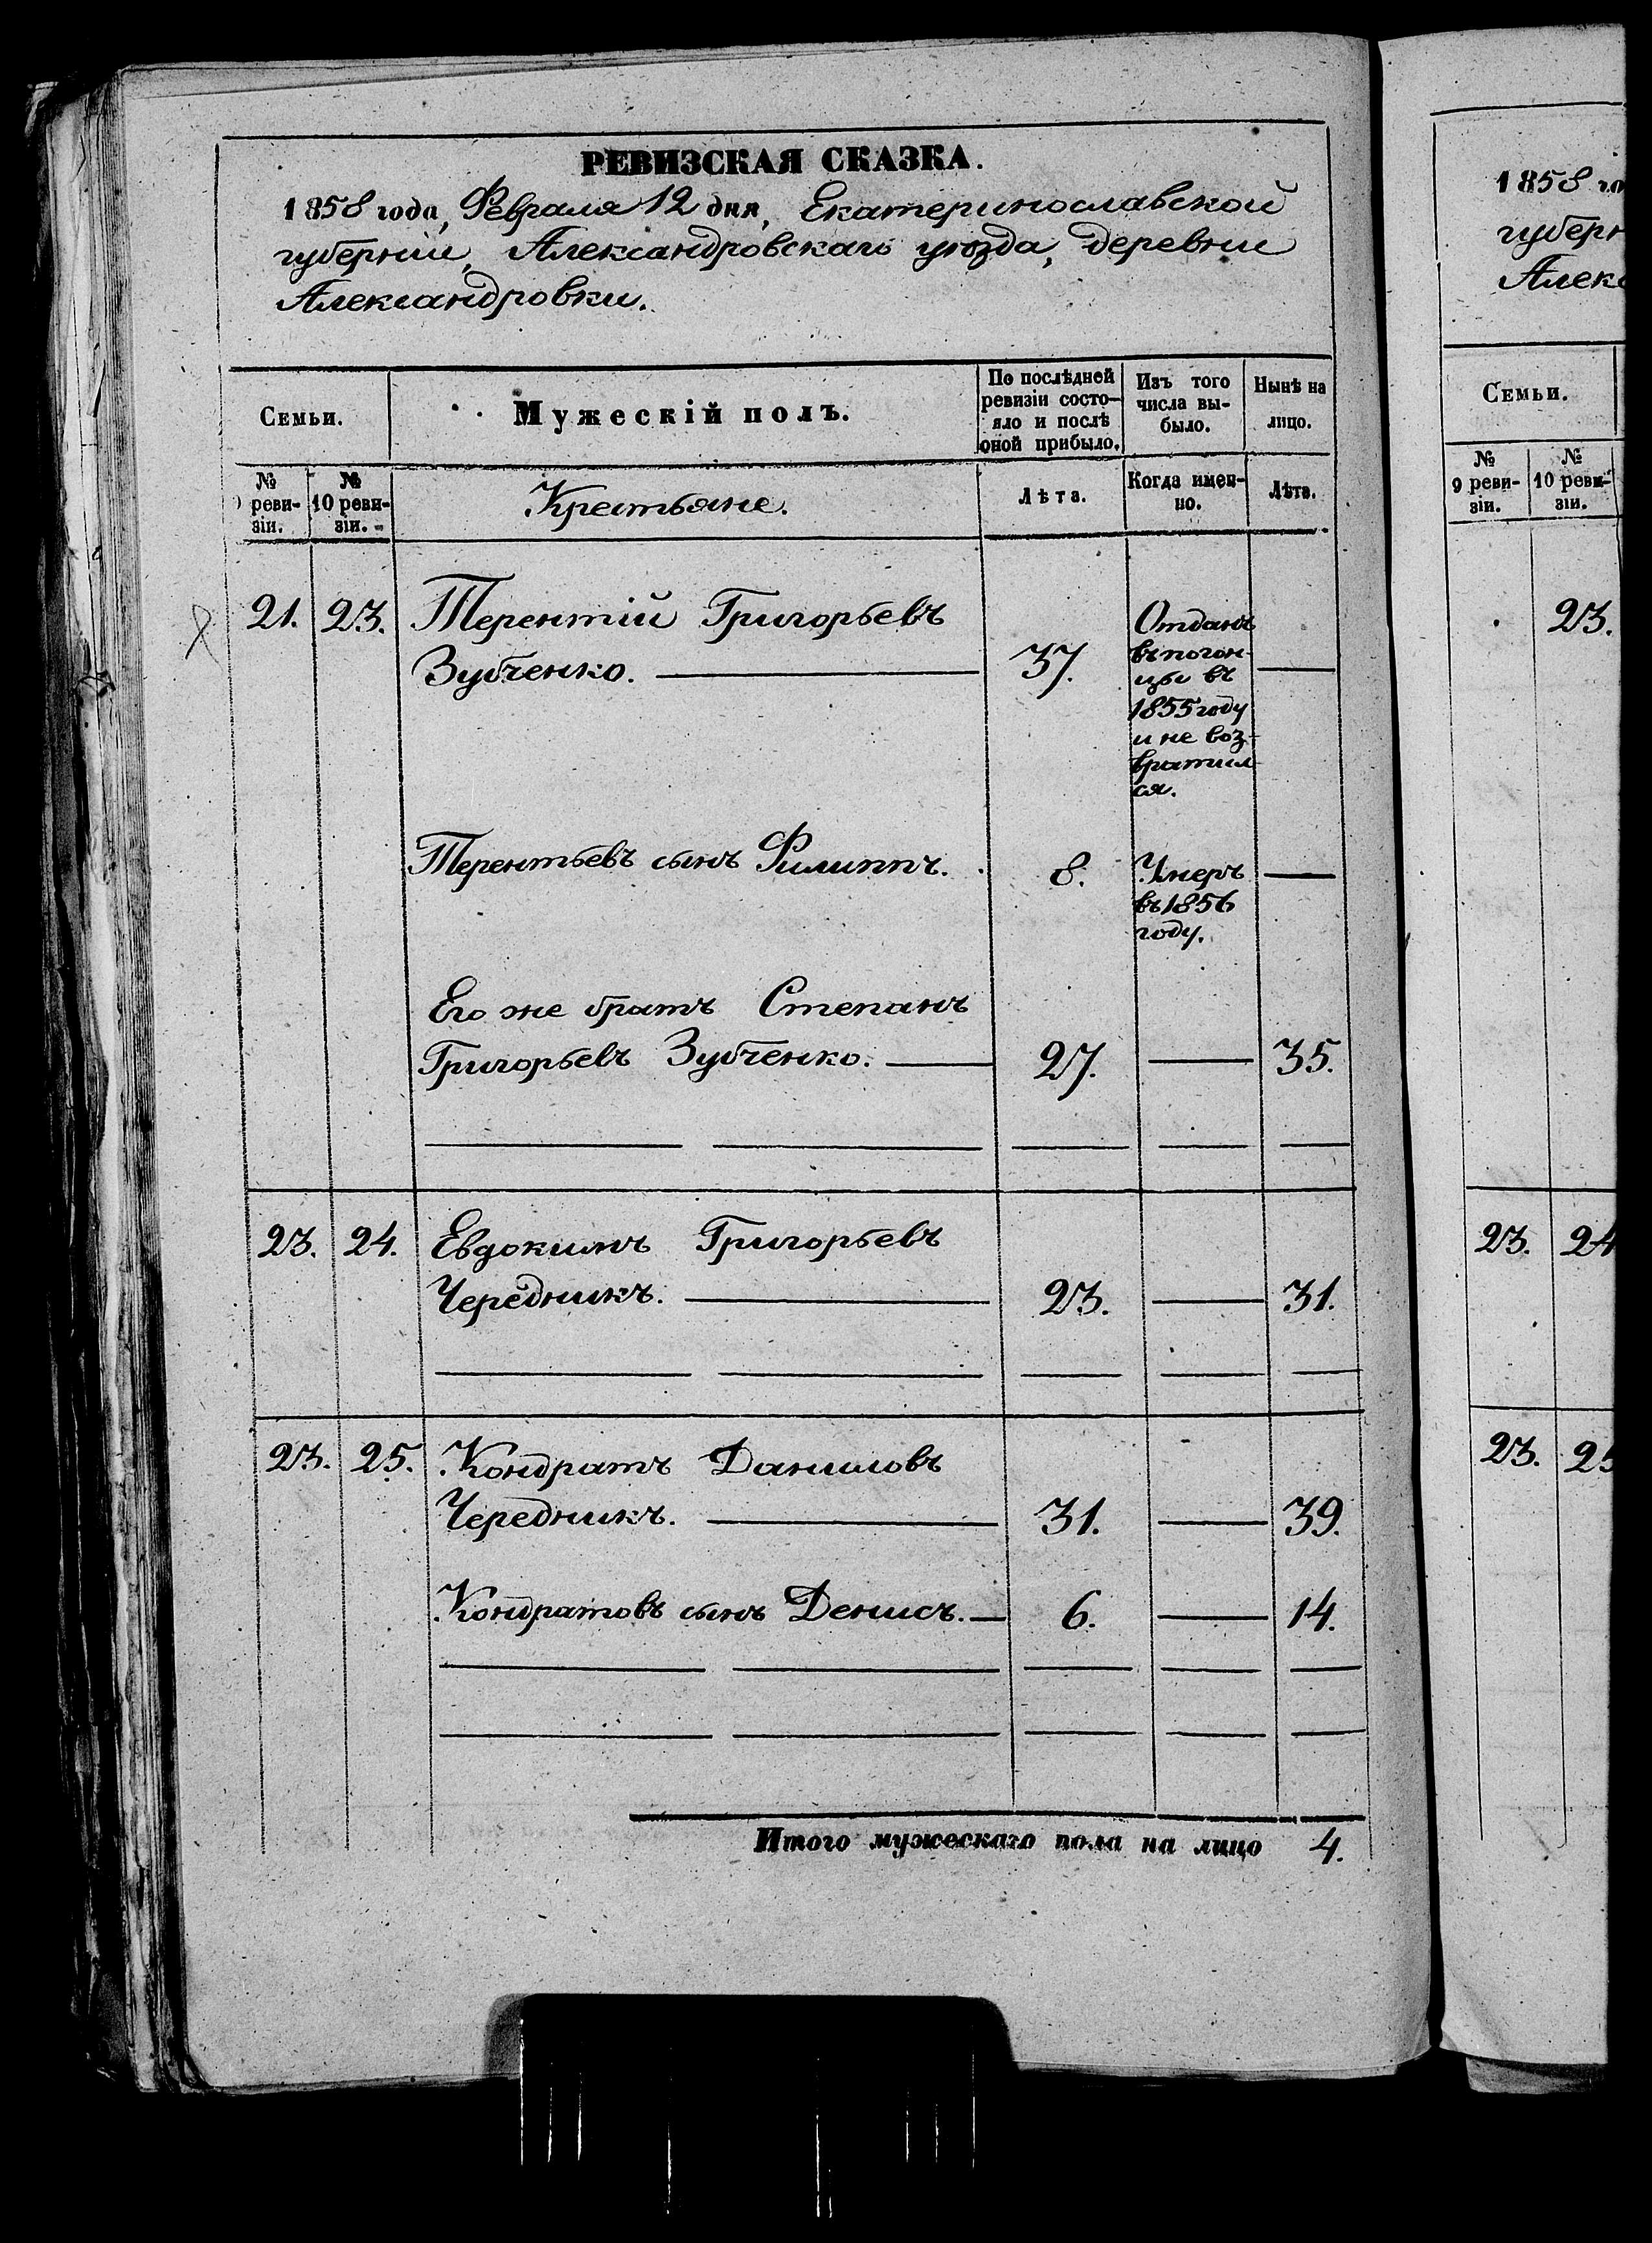 РЕВИЗСКАЯ СКАЗКА.
1858 года, Февраля 12 дня, Екатеринославской
губерніи, Александровскаго уѣзда, деревни
Александровки.
Семьи.
Мужескій полъ.
По послѣдней
ревизіи состо-
яло и послѣ
оной прибыло.
Изъ того
числа вы-
было.
Нынѣ на
лицо.
№
реви-
зіи.
№
10 реви-
зіи.
Крестьяне.
Лѣта.
Когда имен-
но.
Лѣта.
21. 23. Терентій Григорьевъ
Зубченко. 37.
Отданъ
въ погон-
цы въ
1855 году
и не воз-
вратил-
ся.
Терентьевъ сынъ Филиппъ. 8.
Умеръ
въ 1856
году.
Его же братъ Степанъ
Григорьевъ Зубченко. 27. 35.
23. 24. Евдокимъ Григорьевъ
Чередникъ. 23. 31.
23. 25. Кондратъ Даниловъ
Чередникъ. 31. 39.
Кондратовъ сынъ Денисъ. 6. 14.
Итого мужескаго пола на лицо 4.
1858 го
губерн
Алекс
Семьи.
№
9 реви-
зіи.
№
10 реви-
зіи.
23.
23. 24
23. 25